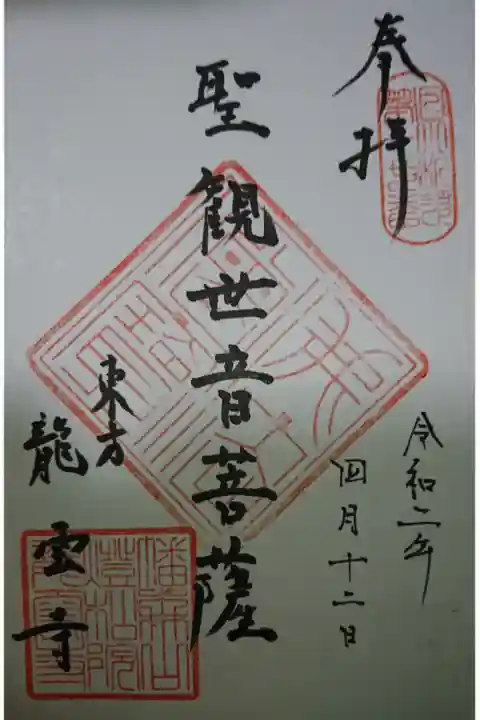 奉拝
令和二年
四月十二日
聖観世音菩薩
東方
龍雲寺